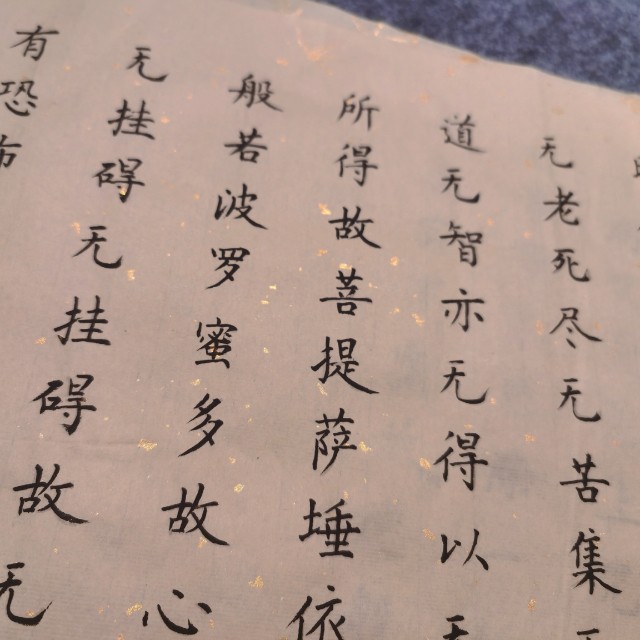 无老死尽无苦集
道无智亦无得以
所得故菩提萨埵依
般若波罗蜜多故心
无挂碍无挂碍故无
有恐